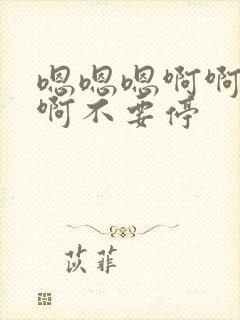 嗯嗯嗯啊啊
啊不要停
苡菲